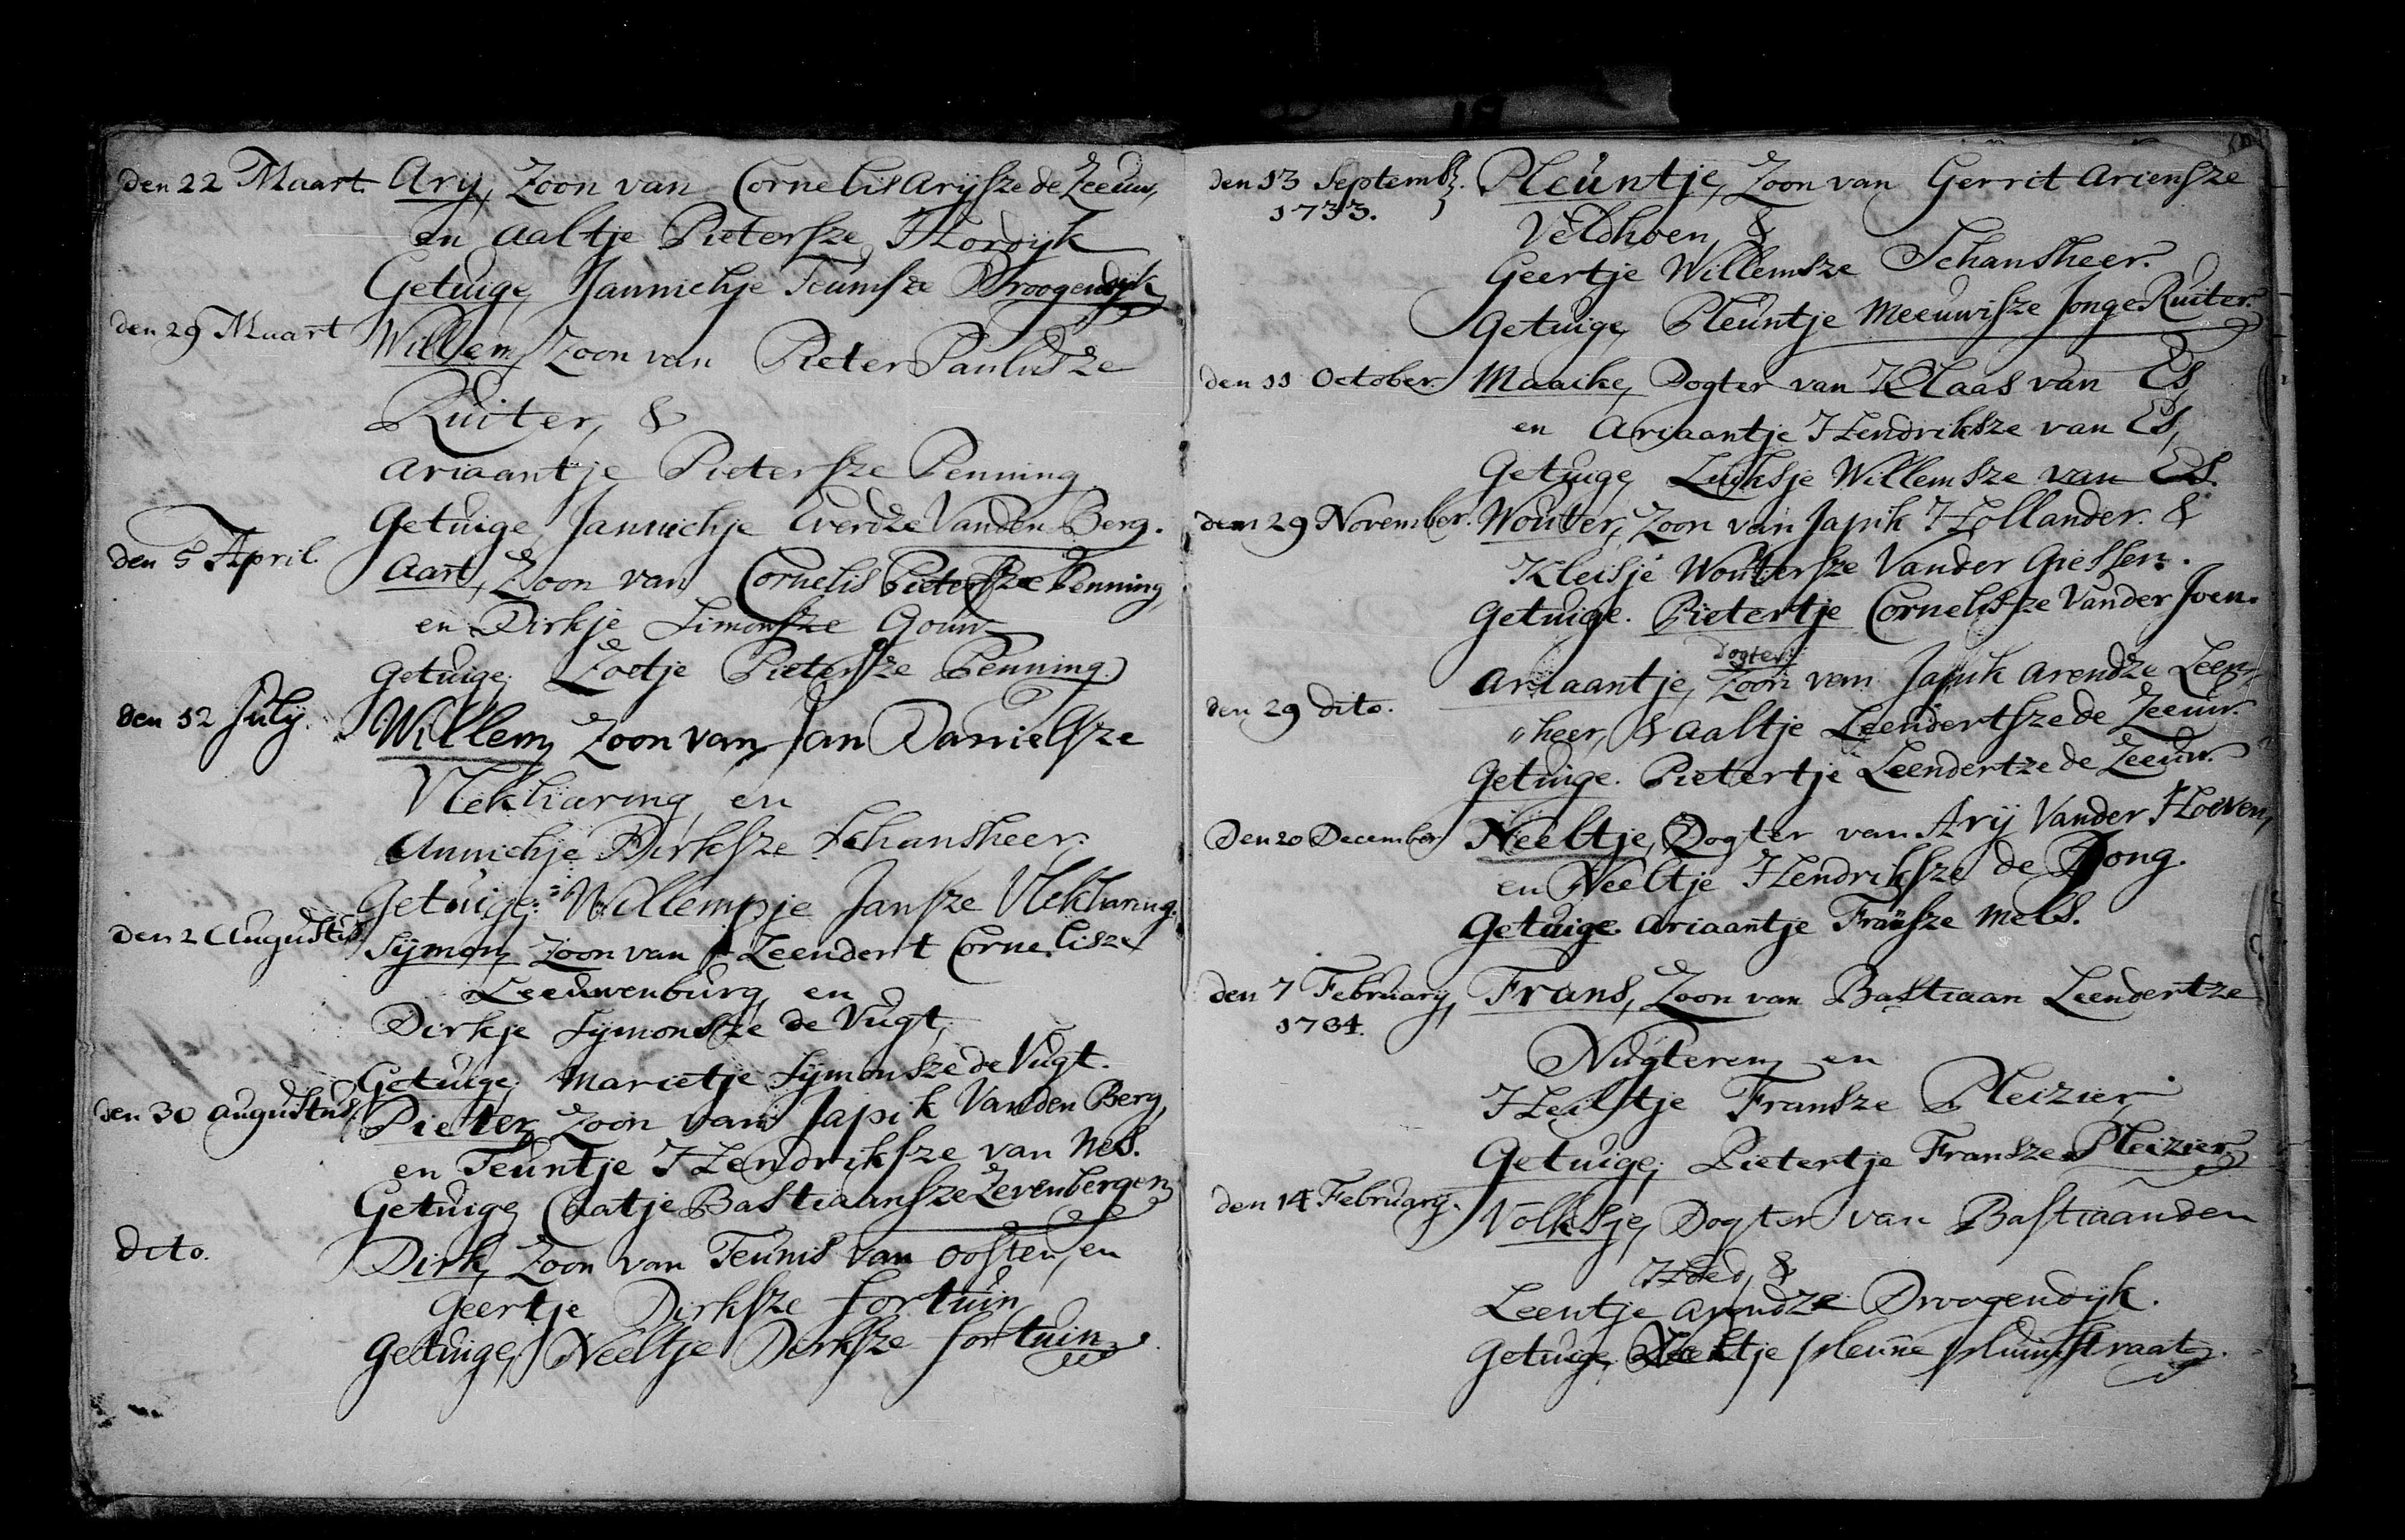 den 22 Maart Arij, Zoon van Cornelis Arijsze de Zeeuw,
en Aaltje Pietersze Hordijk
Getuige, Jannichje Teunisze Droogendijk
den 29 Maart Willem, Zoon van Pieter Paulusze
Ruiter, &
Ariaantje Pietersze Penning.
Getuige, Jannichje Everdze Vanden Berg.
den 5 April. Aart, Zoon van Cornelis Pietersze Penning,
en Dirkje Simonsze Gouw
Getuige, Zoetje Pietersze Penning.
den 12 July. Willem, Zoon van Jan Danielsze
Vlekliaring, en
Annichje Dirksze Schansheer.
Getuige: Willempje Jansze Vlekliaring.
den 2 Augustus Sijmon, Zoon van Leendert Cornelisze
Leeuwenburg, en
Dirkje Sijmonsze de Vugt,
Getuige, Marietje Sijmonsze de Vugt.
den 30 augustus, Pieter, Zoon van Japik Vanden Berg,
en Teuntje Hendriksze van Nes.
Getuige, Caatje Bastiaansze Zevenbergen,
dito. Dirk, Zoon van Teunis van Oosten, en
Geertje Dirksze fortuin,
Getuige, Neeltje Dirksze fortuin.
den 13 Septembr. Pleuntje, Zoon van Gerrit Ariensze
1733.
Veldhoen, &
Geertje Willemsze Schansheer.
Getuige, Pleuntje Meeuwisze Jonge Ruiter.
den 11 October. Maaike, Dogter van Klaas van Es,
en Ariaantje Hendriksze van Es,
Getuige, Luijksje Willemsze van Es.
den 29 November. Wouter, Zoon van Japik Hollander. &
Kleisje Woutersze Vander Giessen.
Getuige. Pietertje Cornelisze Vander Joen.
dogter
den 29 dito. Ariaantje, Zoon van Japik Arendze Leen-
"heer, & Aaltje Leendertsze de Zeeuw.
Getuige. Pietertje Leendertze de Zeeuw.
Den 20 December Neeltje, Dogter van Arij Vander Hoeven,
en Neeltje Hendriksze de Jong.
Getuige. Ariaantje Fransze Mels.
den 7 February, Frans, Zoon van Bastiaan Leendertze
1734.
Nugteren, en
Heiltje Fransze Pleizier,
Getuige, Pietertje Fransze Pleizier.
den 14 February. Volksje, Dogter van Bastiaan den
Hoed, &
Leentje Arendze Droogendijk.
Getuige, pleune pluimstraat.